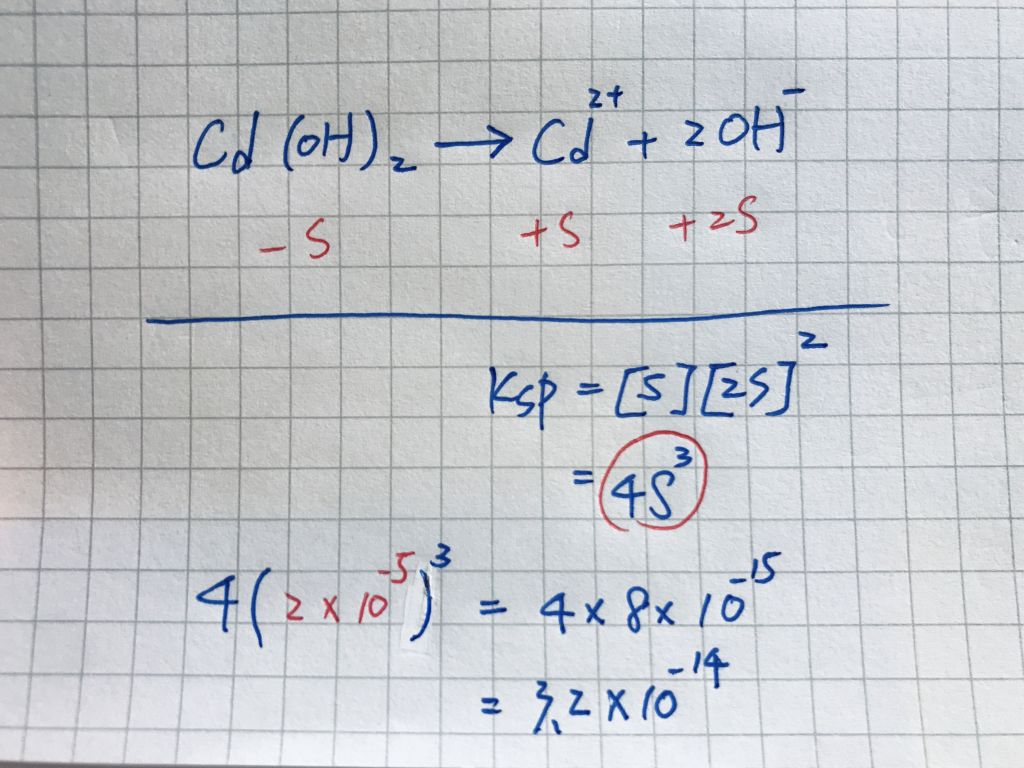 Cd(OH)₂ → Cd²⁺ + 2OH⁻
-S +S +2S
Ksp = [S][2S]²
= 4S³
4(2 × 10⁻⁵)³ = 4 × 8 × 10⁻¹⁵
= 3.2 × 10⁻¹⁴